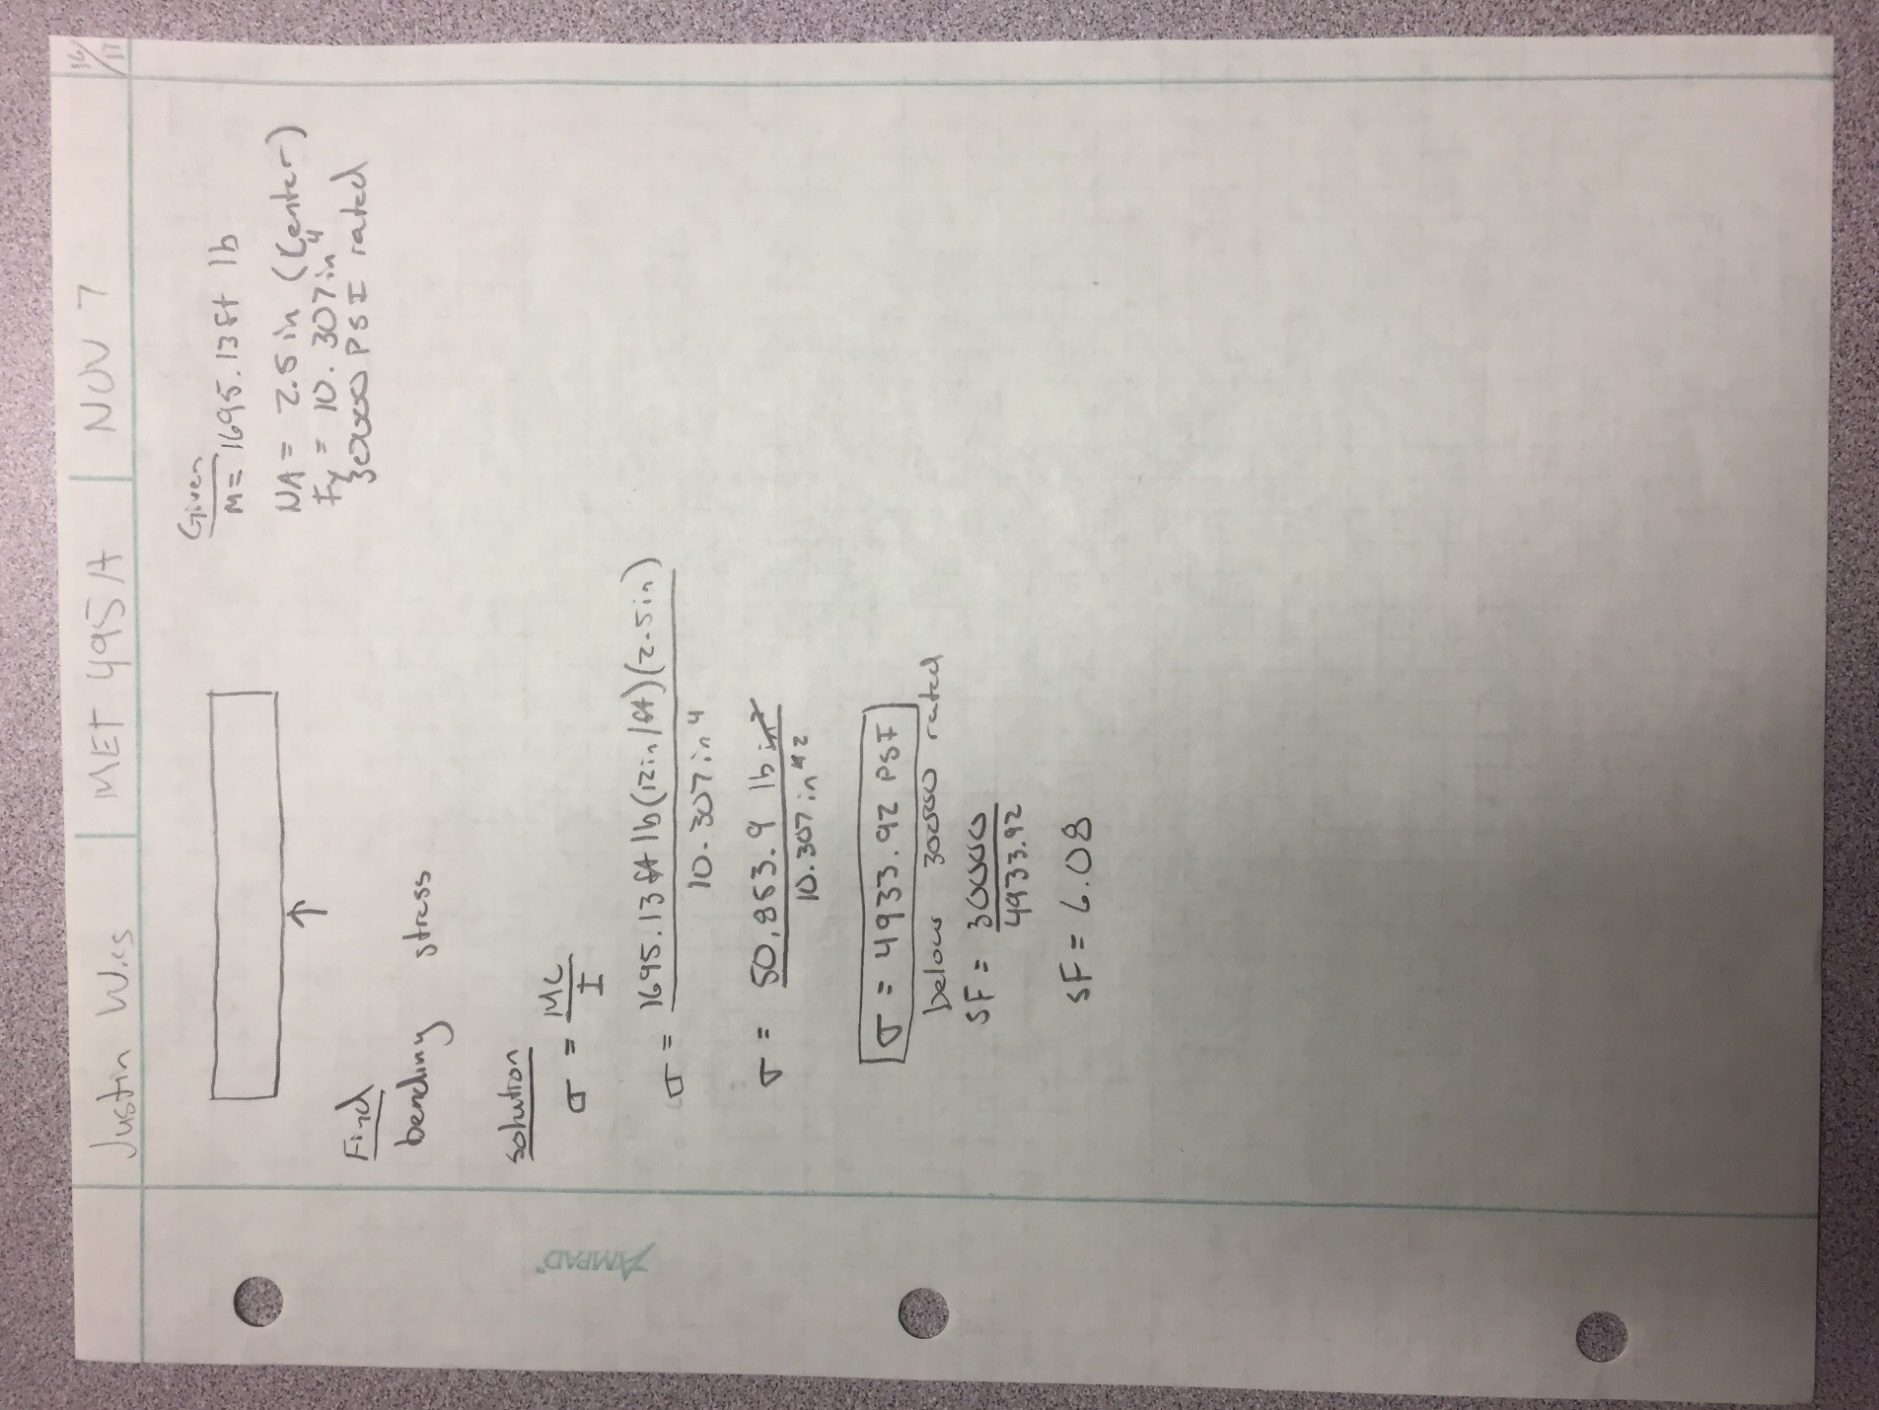 Justin Wies | MET 495A | NOV 7 | 14/17
Given
M = 1695.13 ft lb
NA = 2.5 in (Center)
Iy = 10.307 in⁴
30000 PSI rated
Find
bending stress
Solution
σ = MC/I
σ = 1695.13 ft lb (12 in/ft)(2.5 in) / 10.307 in⁴
σ = 50,853.9 lb in² / 10.307 in⁴²
σ = 4933.92 PSI
below 30000 rated
SF = 30000 / 4933.92
SF = 6.08
AMPAD